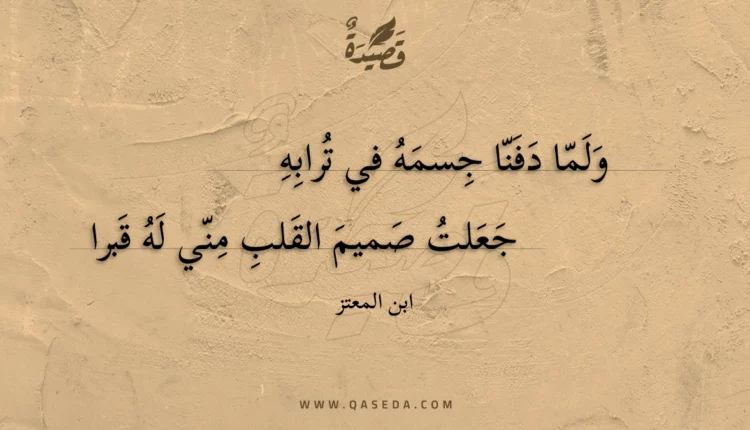 قَصِيدَةٌ
وَلَمّا دَفَنّا جِسمَهُ في تُرابِهِ
جَعَلتُ صَميمَ القَلبِ مِنّي لَهُ قَبرا
ابن المعتز
WWW.QASEDA.COM